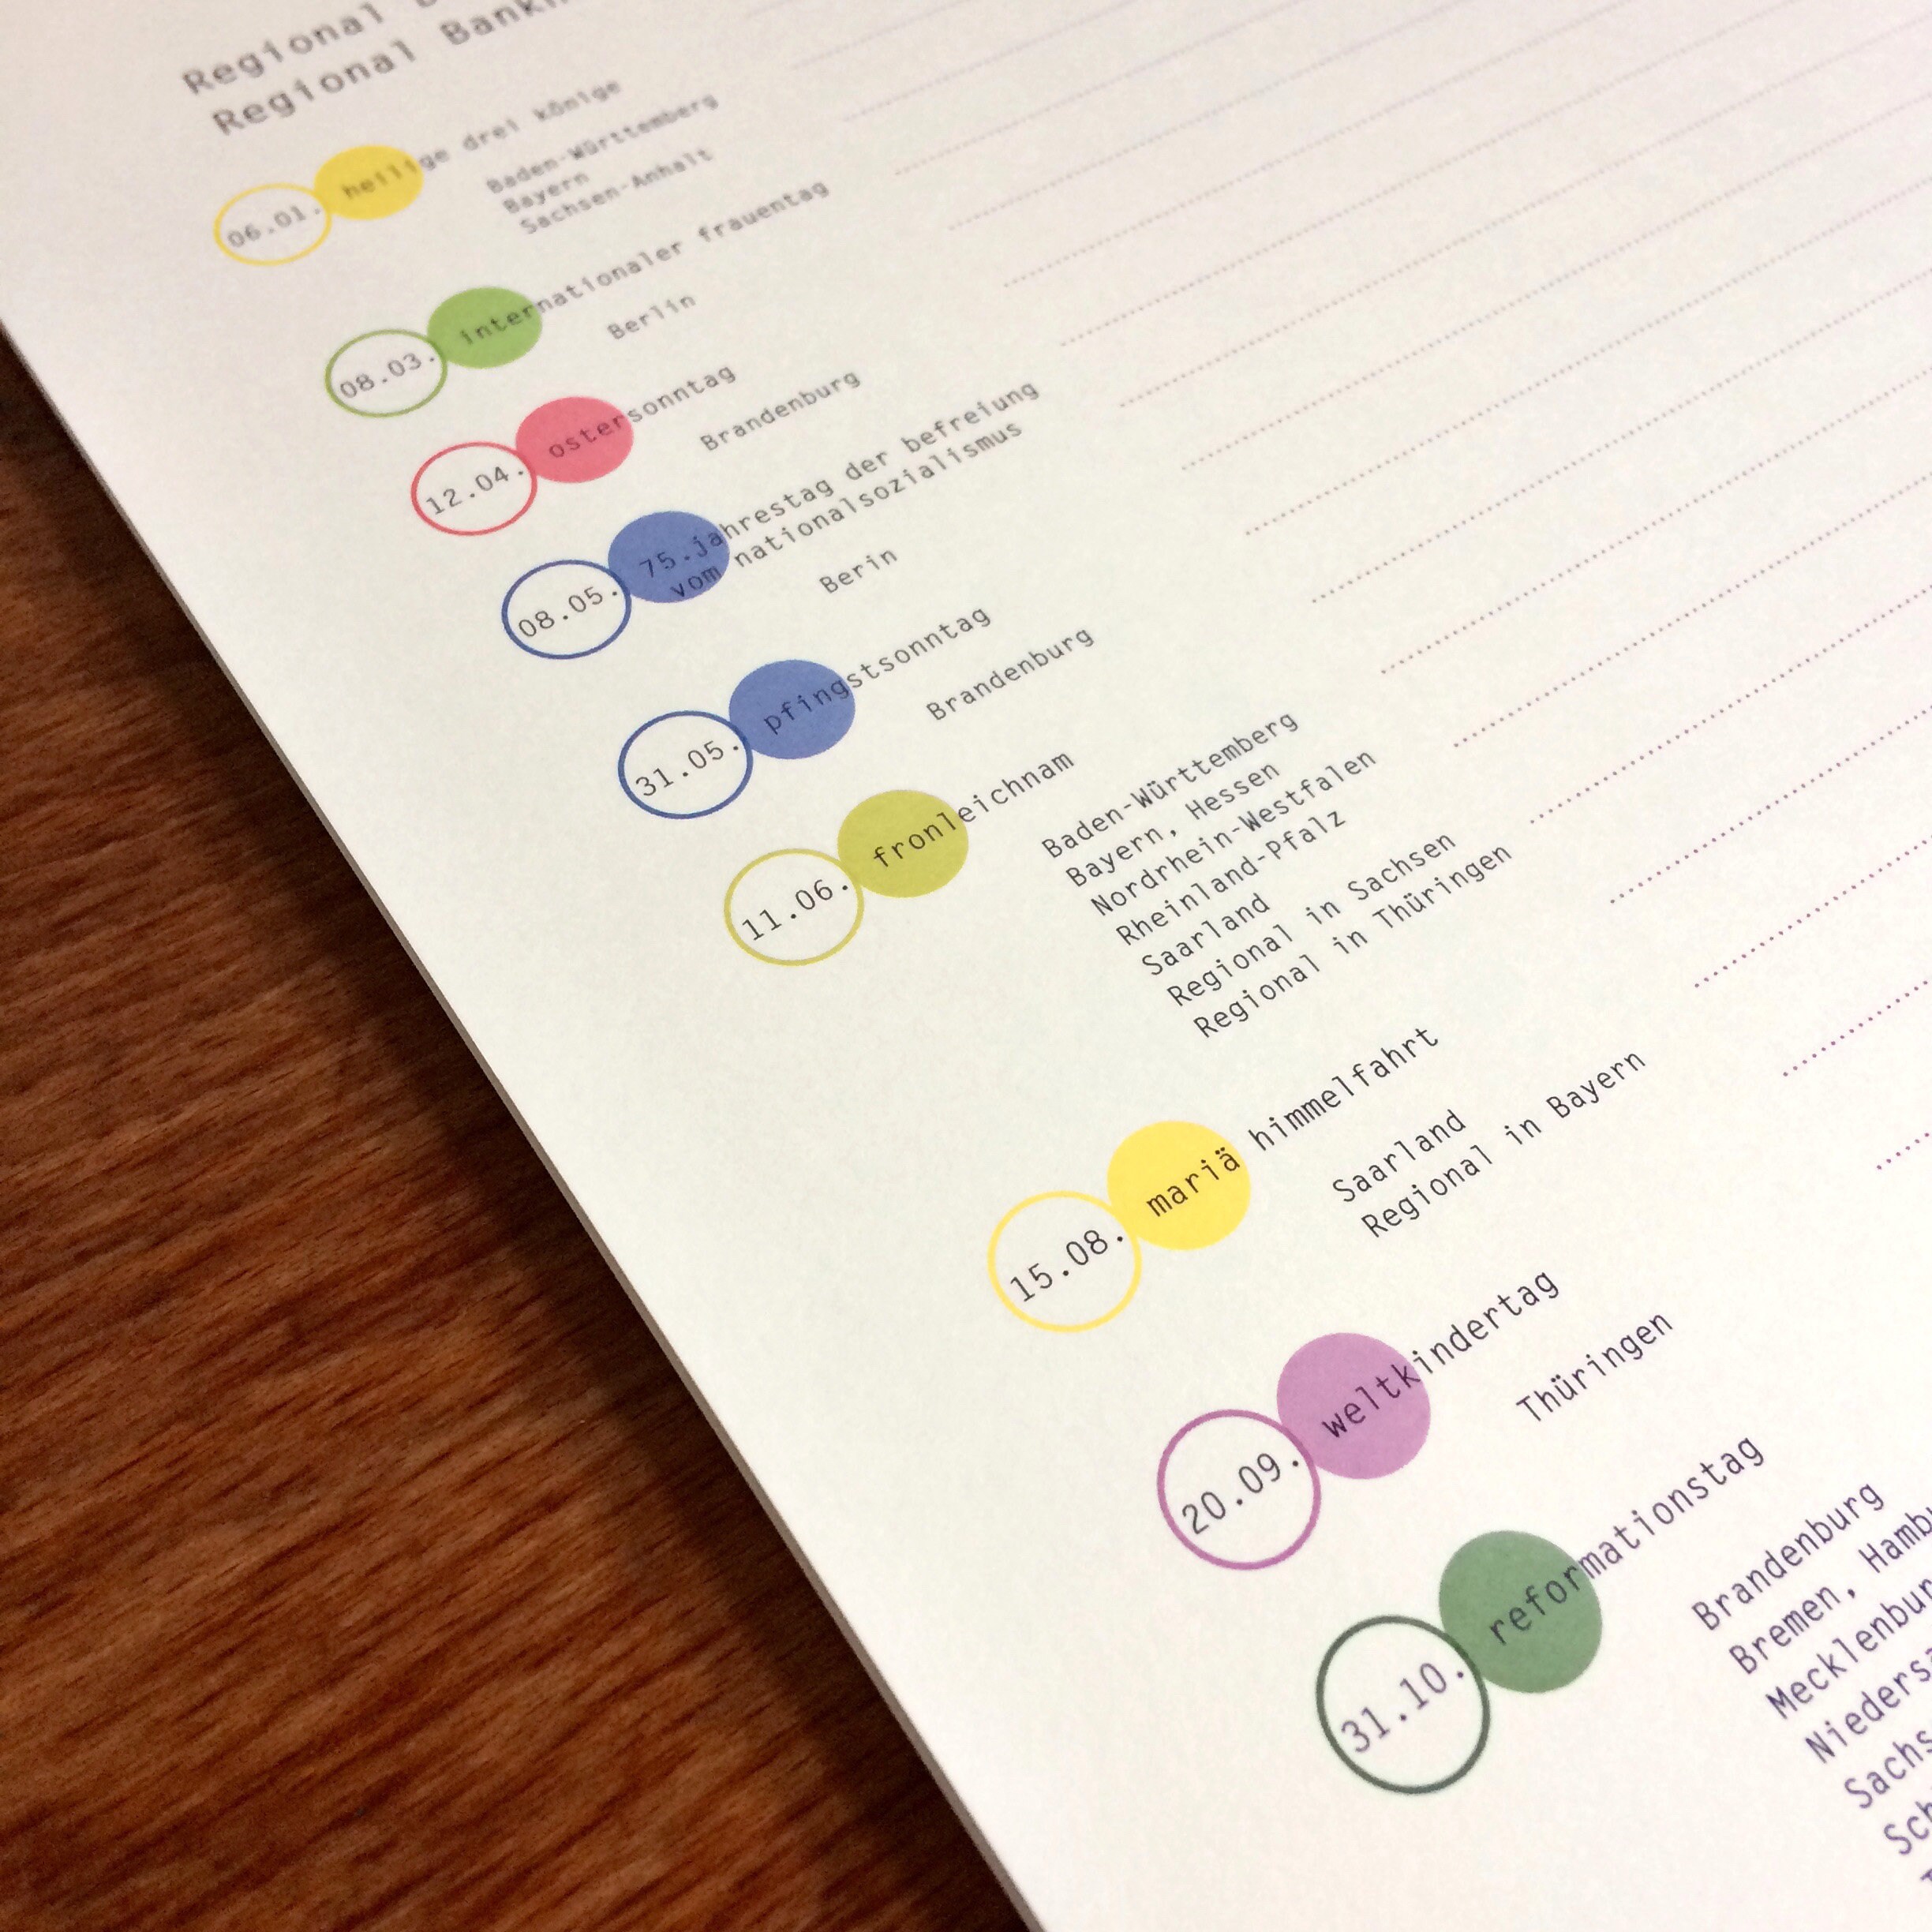 Regional
Regional
06.01. heilige drei könige
Baden-Württemberg
Bayern
Sachsen-Anhalt
08.03. internationaler frauentag
Berlin
12.04. ostersonntag
Brandenburg
08.05. 75.jahrestag der befreiung
vom nationalsozialismus
Berin
31.05. pfingstsonntag
Brandenburg
11.06. fronleichnam
Baden-Württemberg
Bayern, Hessen
Nordrhein-Westfalen
Rheinland-Pfalz
Saarland
Regional in Sachsen
Regional in Thüringen
15.08. mariä himmelfahrt
Saarland
Regional in Bayern
20.09. weltkindertag
Thüringen
31.10. reformationstag
Brandenburg
Bremen,